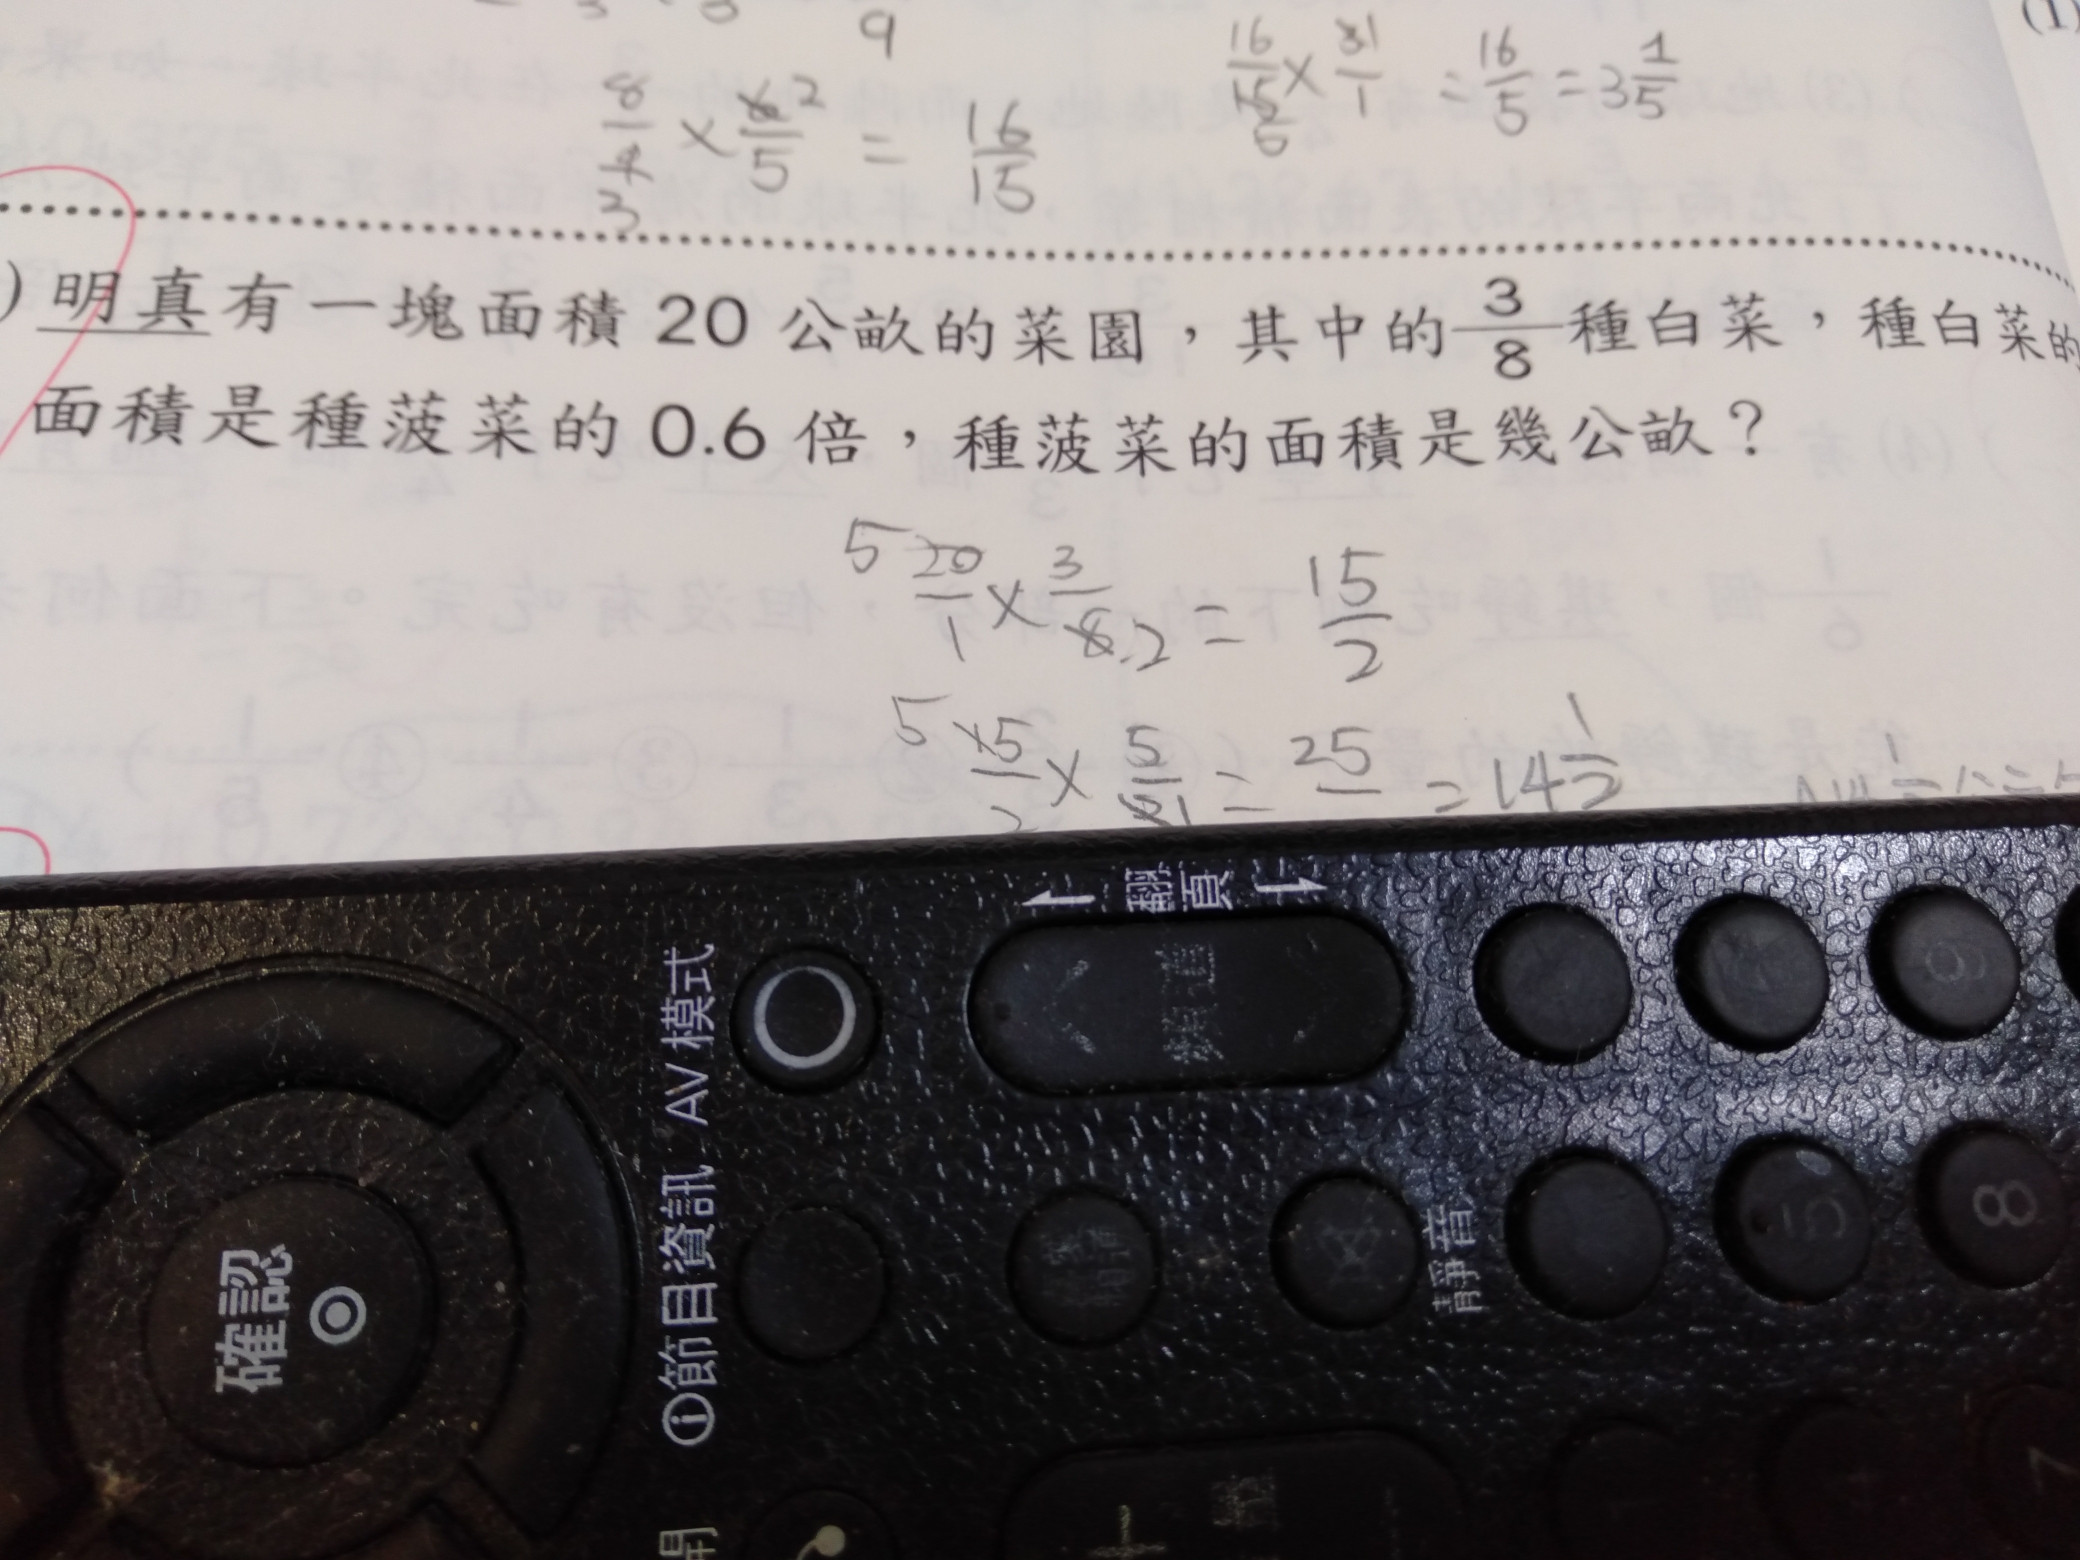 9
8/4 3 × 6/5 2 = 16/15
16/15 5 × 3/1 1 = 16/5 = 3 1/5
(1)
) 明真有一塊面積 20 公畝的菜園，其中的 3/8 種白菜，種白菜的
面積是種菠菜的 0.6 倍，種菠菜的面積是幾公畝？
5 20/1 × 3/8 2 = 15/2
5 15/2 × 5/3 1 = 25/ = 14 1/2
翻頁
頻道
AV 模式
ⓘ節目資訊
靜音
確認
5
8
9
7
+